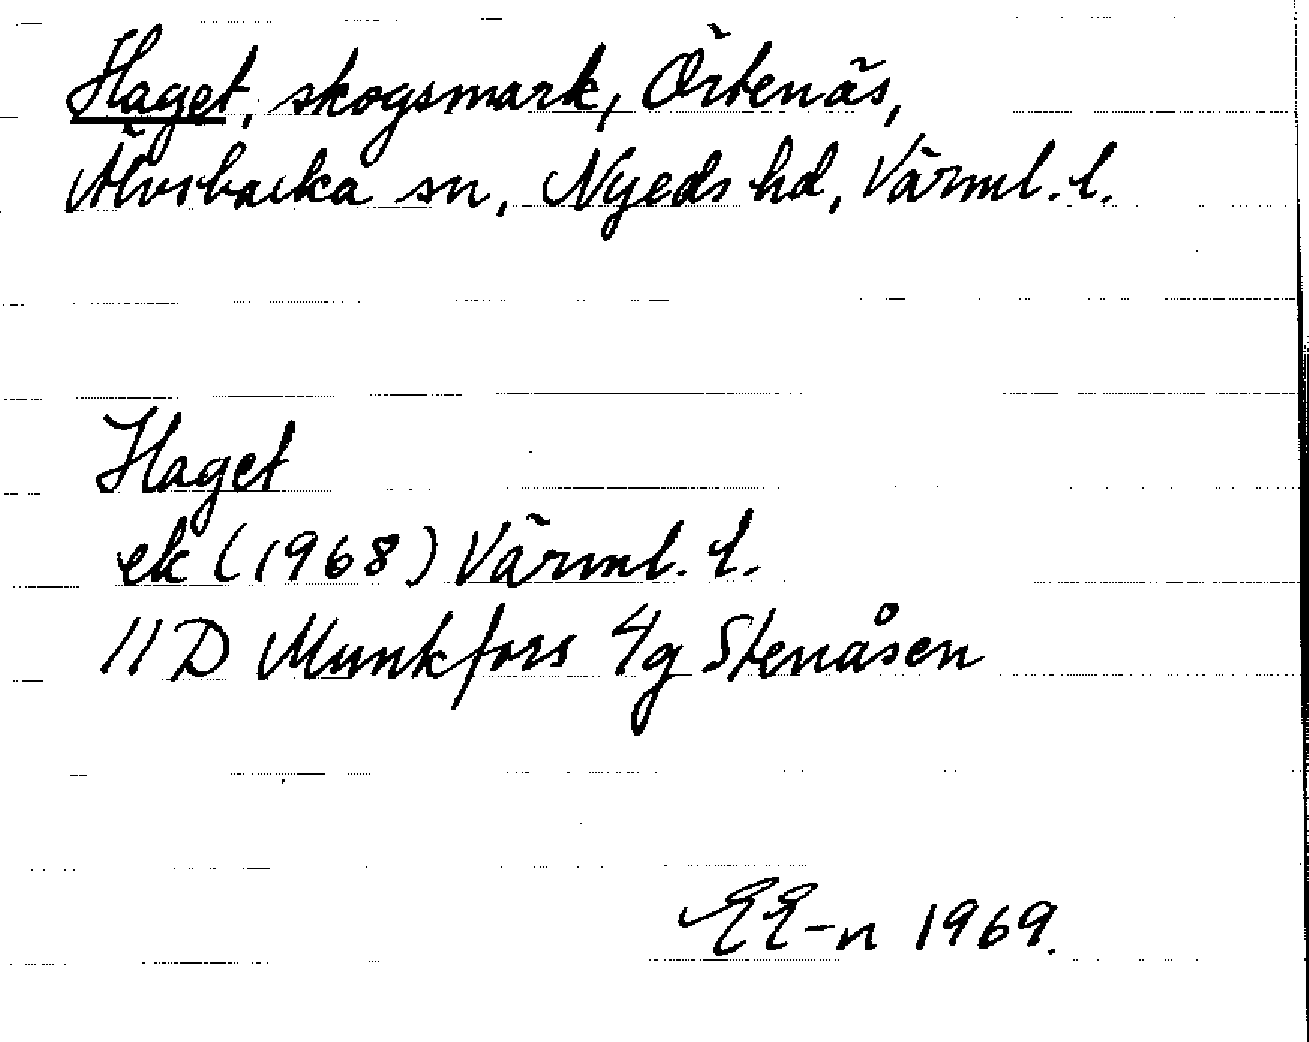 Haget, skogsmark, Örtenäs,
Älvsbacka sn, Nyeds hd, Värml. l.
Haget
ek (1968) Värml. l.
11D Munkfors 4g Stenåsen
EE-n 1969.